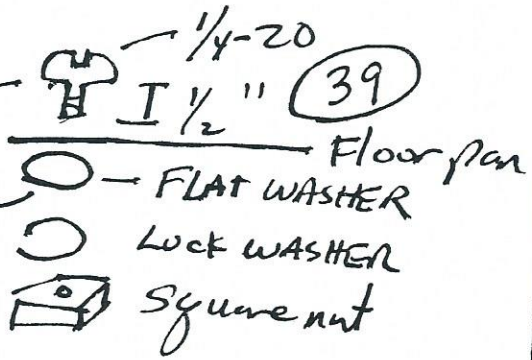 1/4-20
1/2" 39
Floor pan
FLAT WASHER
LOCK WASHER
Square nut